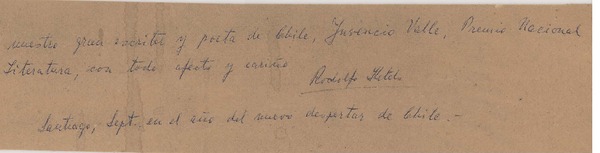 nuestro gran escritor y poeta de Chile, Juvencio Valle, Premio Nacional
Literatura, con todo afecto y cariño
Rodolfo
Santiago, Sept. en el año del nuevo despertar de Chile.-